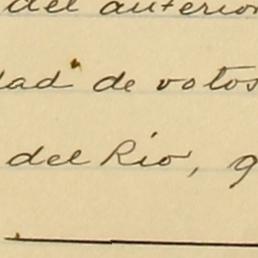 del anterior
dad de votos
del Río, q